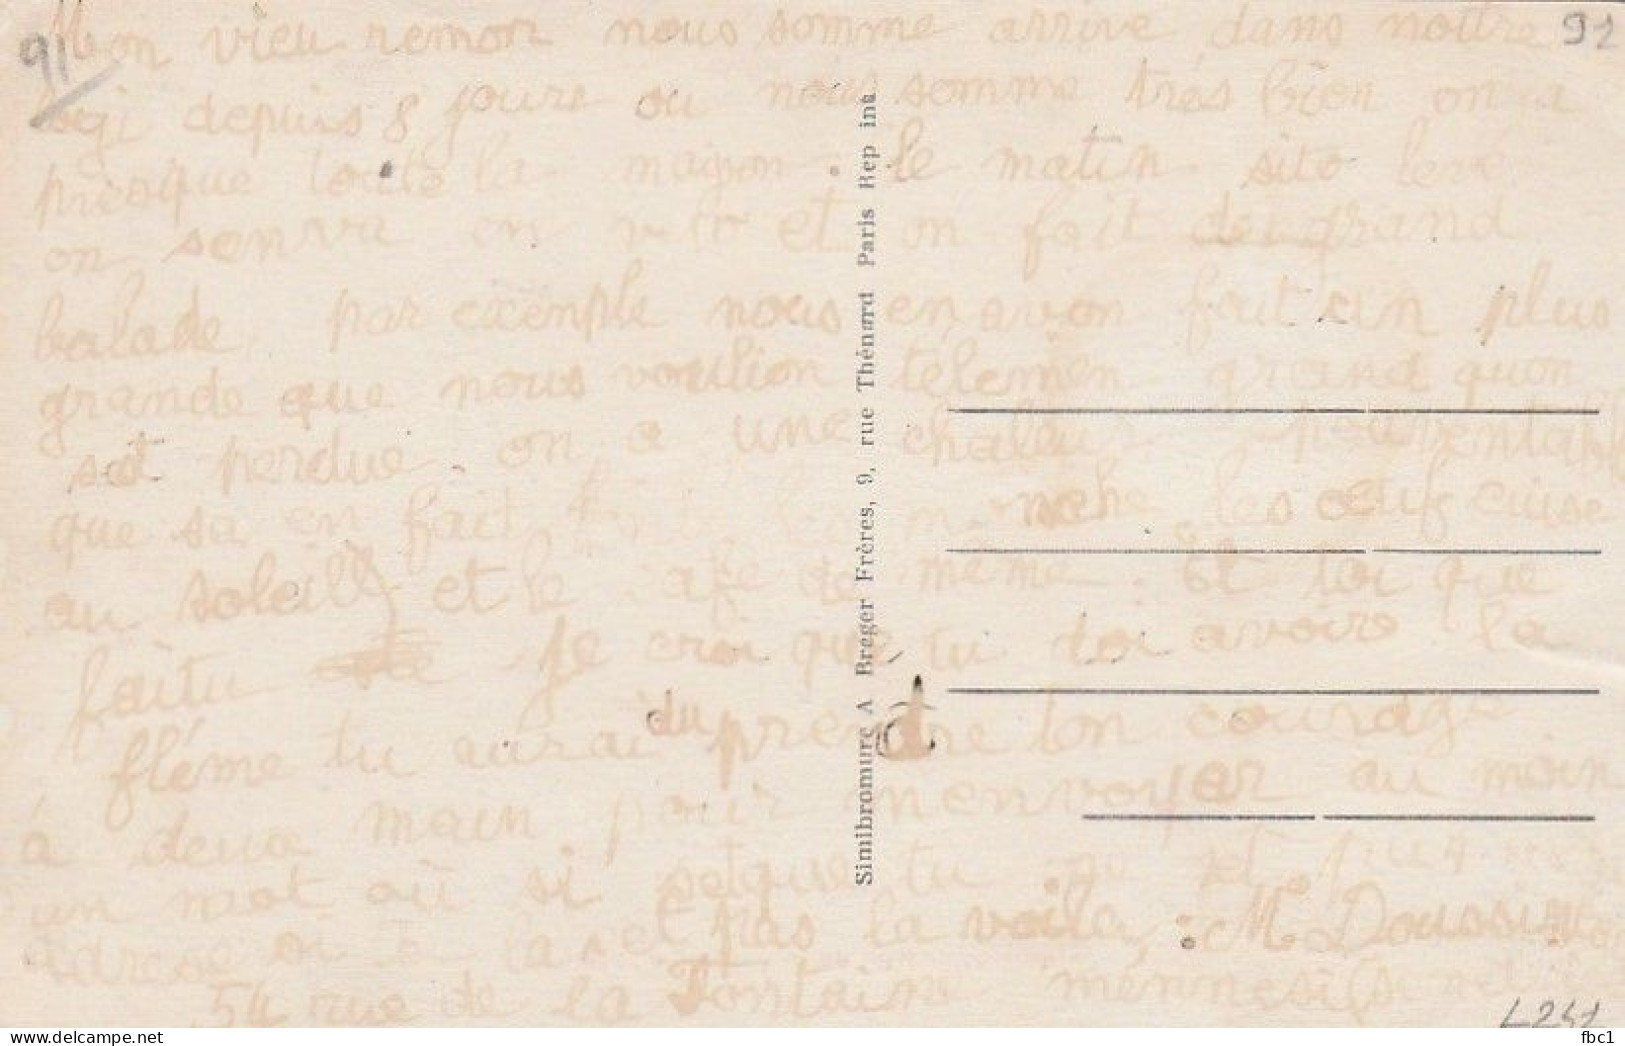 91
92
Mon vieu remon nous somme arrive dans nottre
logi depuis 8 joure ou nous somme très bien on a
presque toute la maison. le matin sito levé
on sonva en vélo et on fait de grand
balade par exemple nous en avon fait un plus
grande que nous voulion telemen grand quon
sat perdue on a une chaleur
que sa en fait les œuf cuise
au soleill et le de même. Et toi que
faitu je croi que tu doi avoire la
fléme tu aurai du prendre ton courage
à deux main pour menvoyer au moin
un mot où si setque tu
adrese la set pas la voila, M. Doussint
54 rue de la Fontaine ménnesi
Simibromure A Breger Frères, 9, rue Thénard Paris Rep int
fbc1